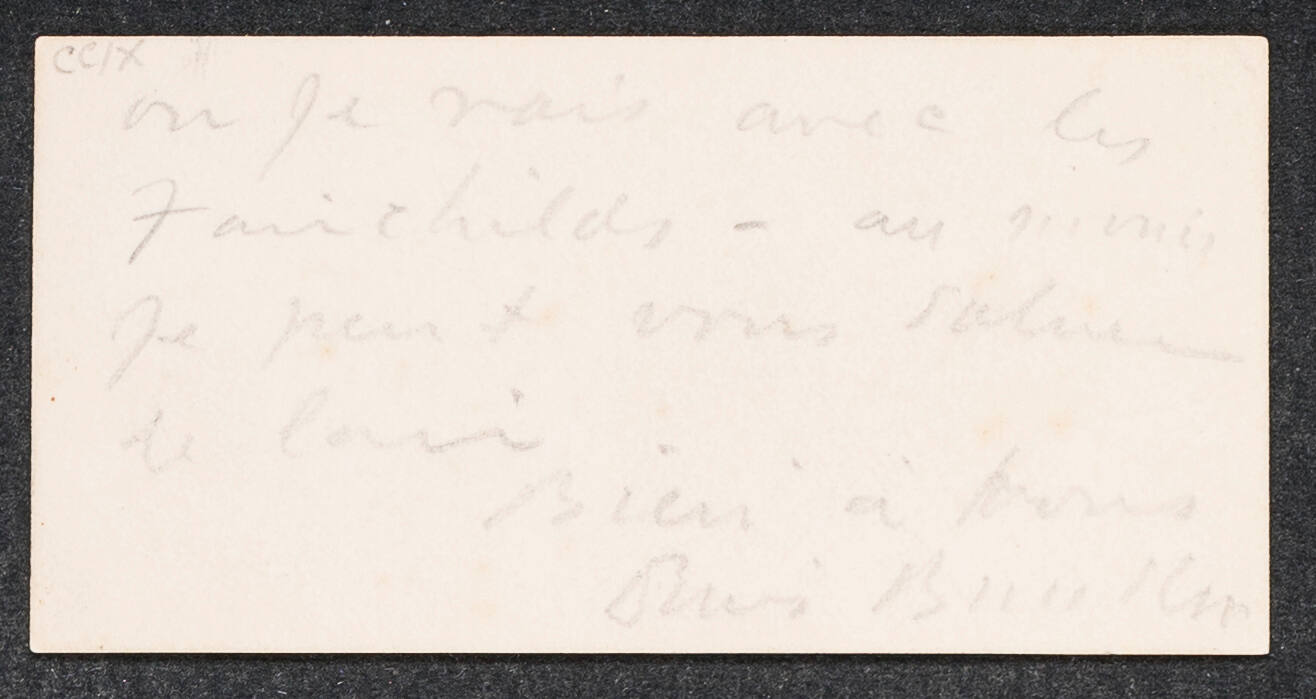 CCIX
ou je vais avec les
Fairchilds - au moins
je peut vous saluer
de loin
Bien à vous
Denis Bunker